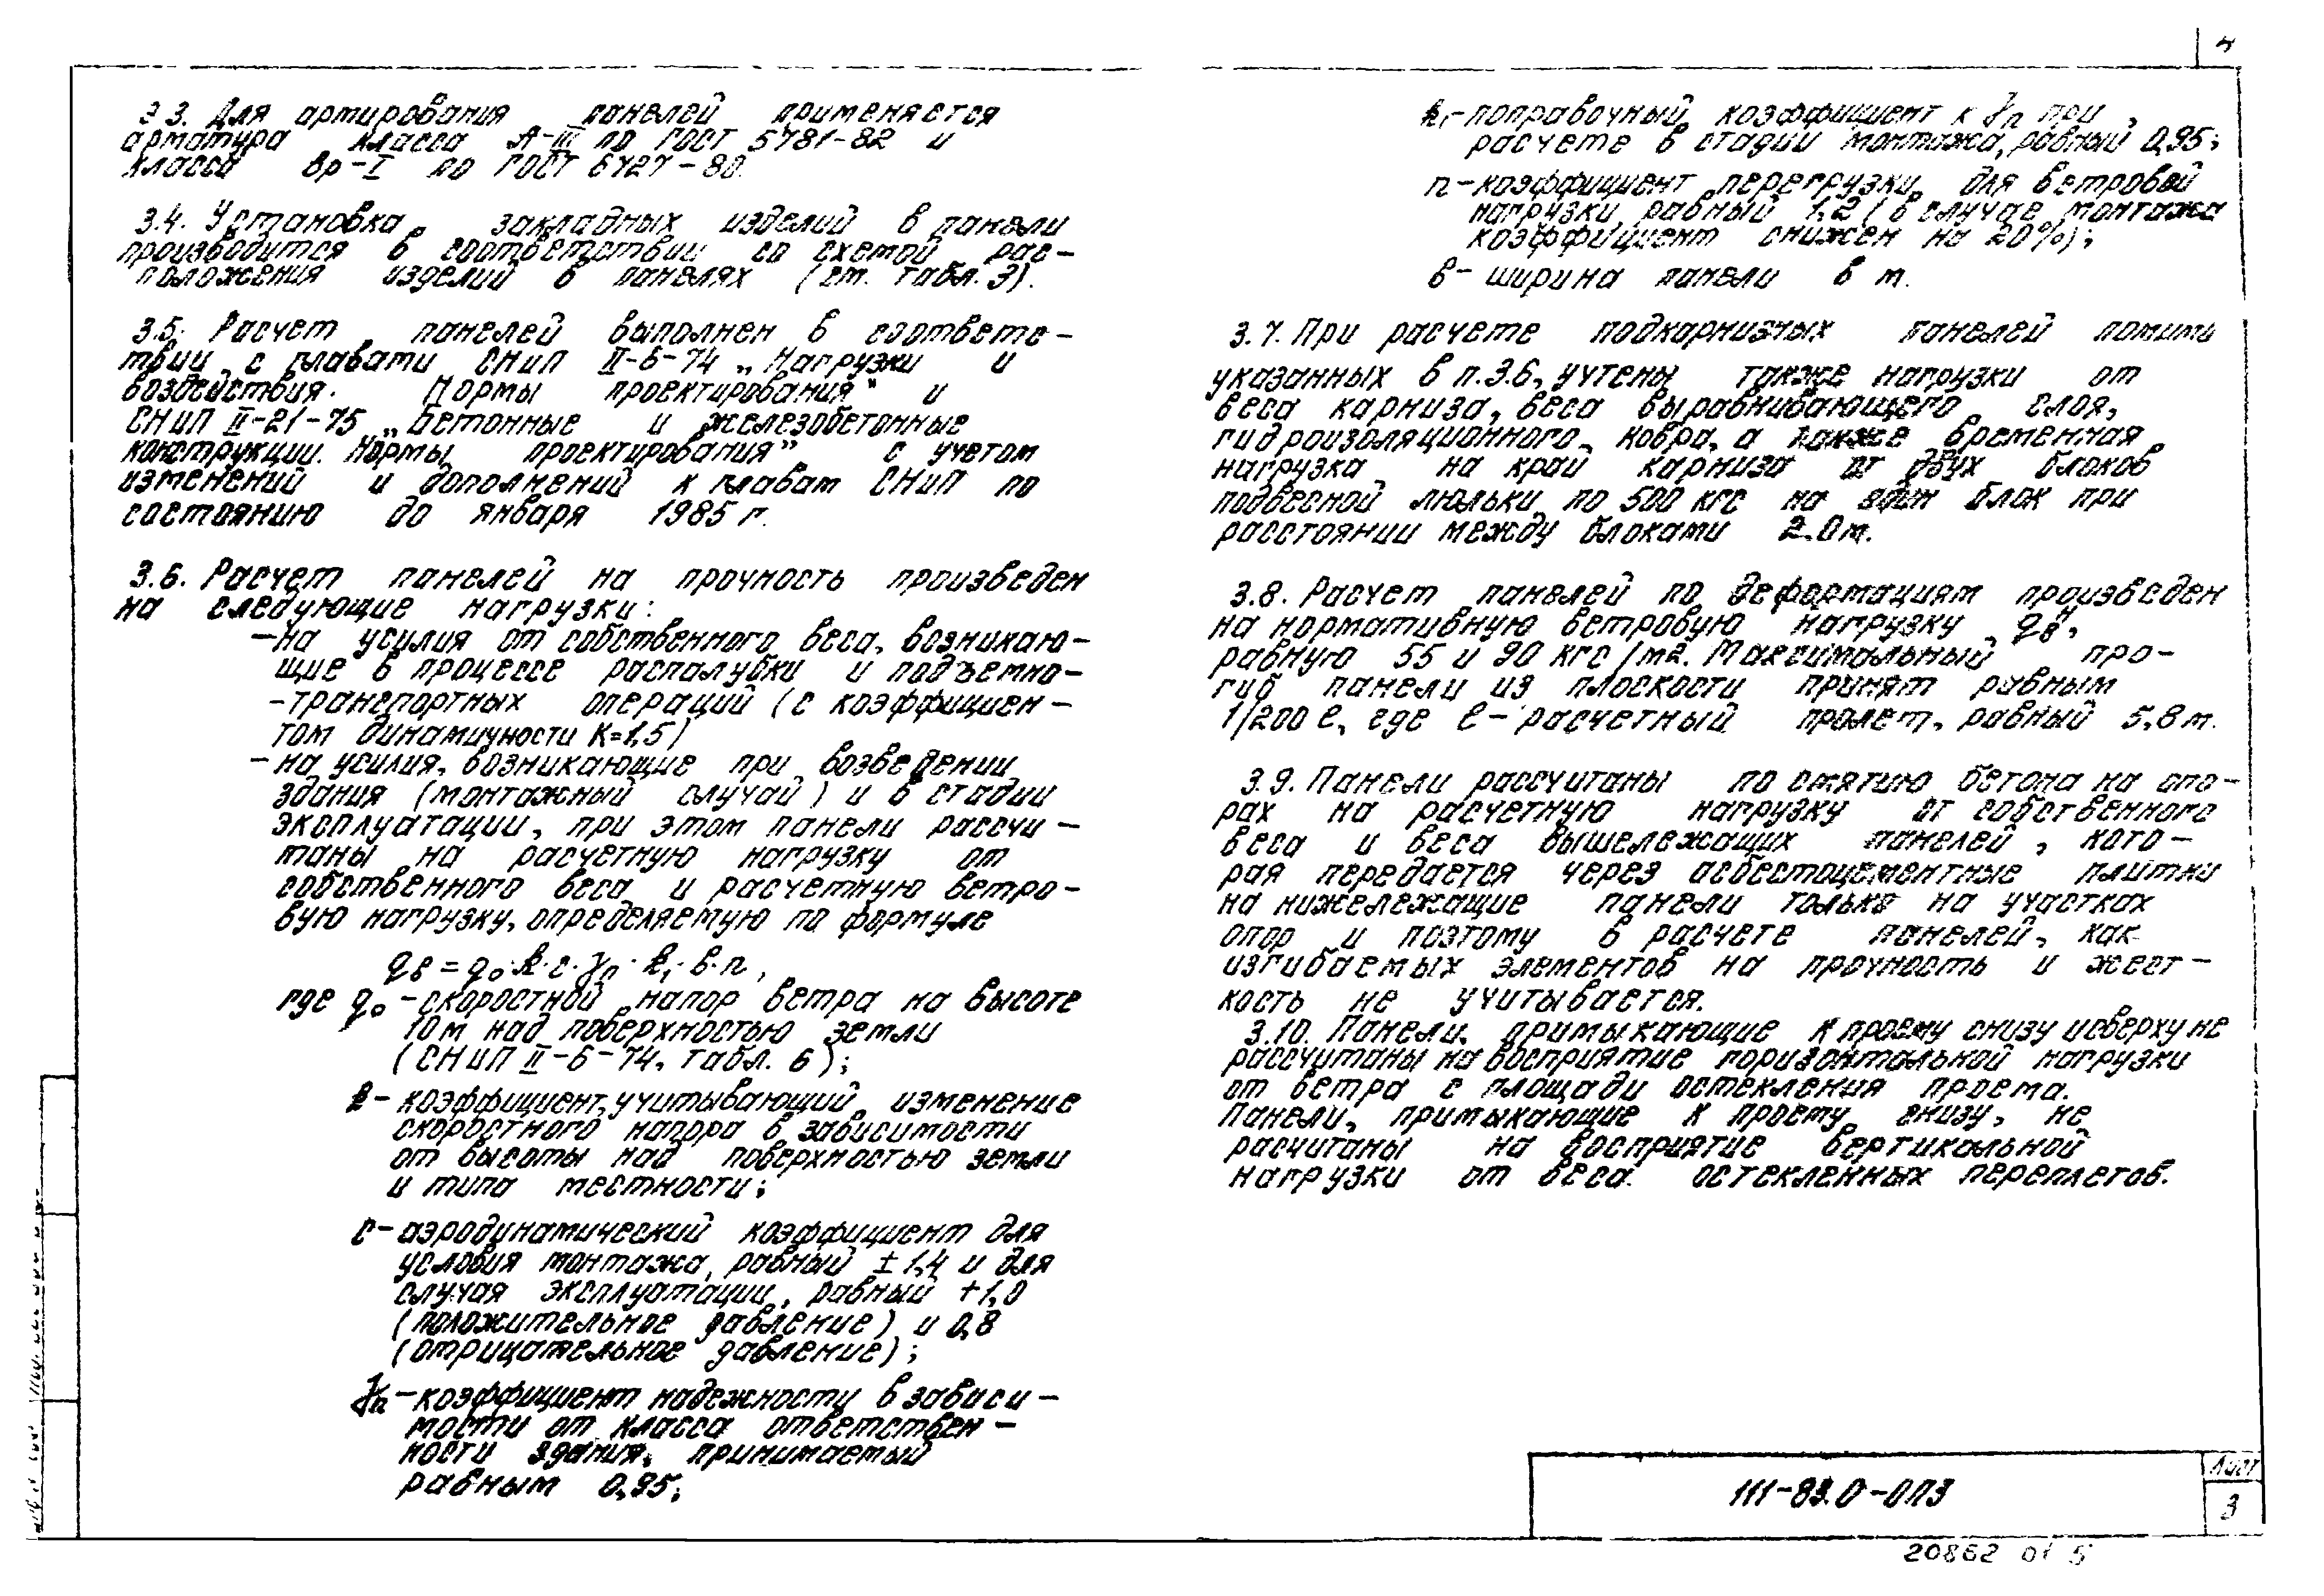 4
3.3. Для армирования панелей применяется
арматура класса А-III по ГОСТ 5781-82 и
класса Вр-I по ГОСТ 6727-80.
3.4. Установка закладных изделий в панели
производится в соответствии со схемой рас-
положения изделий в панелях (см. табл. 3).
3.5. Расчет панелей выполнен в соответс-
твии с главами СНиП II-6-74 „Нагрузки и
воздействия. Нормы проектирования" и
СНиП II-21-75 „Бетонные и железобетонные
конструкции. Нормы проектирования" с учетом
изменений и дополнений к главам СНиП по
состоянию до января 1985 г.
3.6. Расчет панелей на прочность произведен
на следующие нагрузки:
-на усилия от собственного веса, возникаю-
щие в процессе распалубки и подъемно-
-транспортных операций (с коэффициен-
том динамичности К=1,5)
-на усилия, возникающие при возведении
здания (монтажный случай) и в стадии
эксплуатации, при этом панели рассчи-
таны на расчетную нагрузку от
собственного веса и расчетную ветро-
вую нагрузку, определяемую по формуле
qв = q₀·k·c·γn·k₁·в·n,
где q₀ - скоростной напор ветра на высоте
10 м над поверхностью земли
(СНиП II-6-74, табл. 6);
k- коэффициент, учитывающий изменение
скоростного напора в зависимости
от высоты над поверхностью земли
и типа местности;
с- аэродинамический коэффициент для
условия монтажа, равный ± 1,4 и для
случая эксплуатации, равный +1,0
(положительное давление) и 0,8
(отрицательное давление);
γn - коэффициент надежности в зависи-
мости от класса ответствен-
ности здания, принимаемый
равным 0,95;
k₁-поправочный коэффициент к γn при
расчете в стадии монтажа, равный 0,95;
n-коэффициент перегрузки для ветровой
нагрузки равный 1,2 (в случае монтажа
коэффициент снижен на 20%);
в- ширина панели в м.
3.7. При расчете подкарнизных панелей помимо
указанных в п.3.6, учтены также нагрузки от
веса карниза, веса выравнивающего слоя,
гидроизоляционного ковра, а также временная
нагрузка на край карниза от двух блоков
подвесной люльки по 500 кгс на один блок при
расстоянии между блоками 2.0 м.
3.8. Расчет панелей по деформациям произведен
на нормативную ветровую нагрузку qвн,
равную 55 и 90 кгс/м2. Максимальный про-
гиб панели из плоскости принят равным
1/200 ℓ, где ℓ- расчетный пролет, равный 5,8 м.
3.9. Панели рассчитаны по смятию бетона на опо-
рах на расчетную нагрузку от собственного
веса и веса вышележащих панелей, кото-
рая передается через асбестоцементные плитки
на нижележащие панели только на участках
опор и поэтому в расчете панелей, как
изгибаемых элементов на прочность и жест-
кость не учитывается.
3.10. Панели, примыкающие к проему снизу и сверху не
рассчитаны на восприятие горизонтальной нагрузки
от ветра с площади остекления проема.
Панели, примыкающие к проему снизу, не
расчитаны на восприятие вертикальной
нагрузки от веса остекленных переплетов.
111-83.0-ОПЗ
Лист
3
20862 01 5